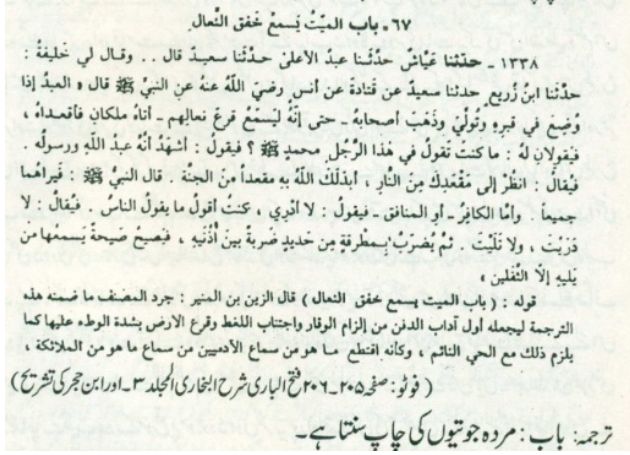 ٦٧ ـ باب الميتُ يَسمعُ خفقَ النِّعال
١٣٣٨ ـ حدّثنا عَيّاش حدّثنا عبدُ الأعلىٰ حدّثنا سعيدٌ قال . . وقال لي خَليفةُ :
حدَّثنا ابنُ زُرَيع حدّثنا سعيدٌ عن قتادةَ عن أنسٍ رضيَ اللّهُ عنهُ عنِ النبيِّ ﷺ قال « العبدُ إذا
وُضِعَ في قبرِهِ وتُوُلِّيَ وذَهَبَ أصحابُهُ ـ حتى إنَّهُ ليَسْمَعُ قَرعَ نعالِهم ـ أتاهُ ملكانِ فأقعداهُ ،
فيقولانِ لهُ : ما كنتَ تقولُ في هذا الرَّجُلِ محمدٍ ﷺ ؟ فيقولُ : أشهدُ أنَّهُ عبدُ اللّهِ ورسولُه .
فيُقالُ : انظُرْ إلى مَقْعَدِكَ مِنَ النّارِ ، أبدَلَكَ اللّهُ بهِ مَقعداً منَ الجنَّةِ . قال النبيُّ ﷺ : فيراهُما
جميعاً . وأمّا الكافِرُ ـ أو المنافق ـ فيقولُ : لا أدْرِي ، كنتُ أقولُ ما يقولُ الناسُ . فيُقالُ : لا
دَرَيْتَ ، ولا تَلَيْتَ . ثم يُضرَبُ بِمِطرقةٍ من حديدٍ ضَربةً بينَ أُذُنَيهِ ، فيَصيحُ صَيحةً يَسمعُها من
يَليهِ إلاَّ الثَّقَلَينِ »
قوله : ( باب الميت يسمع خفق النعال ) قال الزين بن المنير : جرد المصنف ما ضمنه هذه
الترجمة ليجعله أول آداب الدفن من إلزام الوقار واجتناب اللغط وقرع الأرض بشدة الوطء عليها كما
يلزم ذلك مع الحي النائم ، وكأنه اقتطع ما هو من سماع الآدميين من سماع ما هو من الملائكة ،
( فوٹو: صفحہ ۲۰۵۔۲۰۶ فتح الباری شرح البخاری المجلد ۳۔ اور ابن حجر کی تشریح )
ترجمہ: باب : مردہ جوتیوں کی چاپ سنتا ہے۔